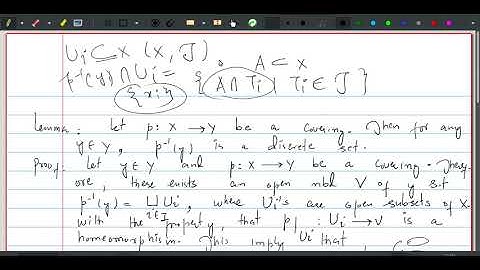 Ui ⊆ X (X, J)
A ⊂ X
p⁻¹(y) ∩ Ui = { A ∩ Ti | Ti ∈ J }
{xi}
Lemma: Let p: X → Y be a covering. Then for any
y ∈ Y, p⁻¹(y) is a discrete set.
Proof: Let y ∈ Y and p: X → Y be a covering. Theref-
ore, there exists an open nbd V of y s.t
p⁻¹(V) = ⊔ Ui, where Ui's are open subsets of X
i ∈ I
with the property, that p| : Ui → V is a
Ui
homeomorphism. This imply that